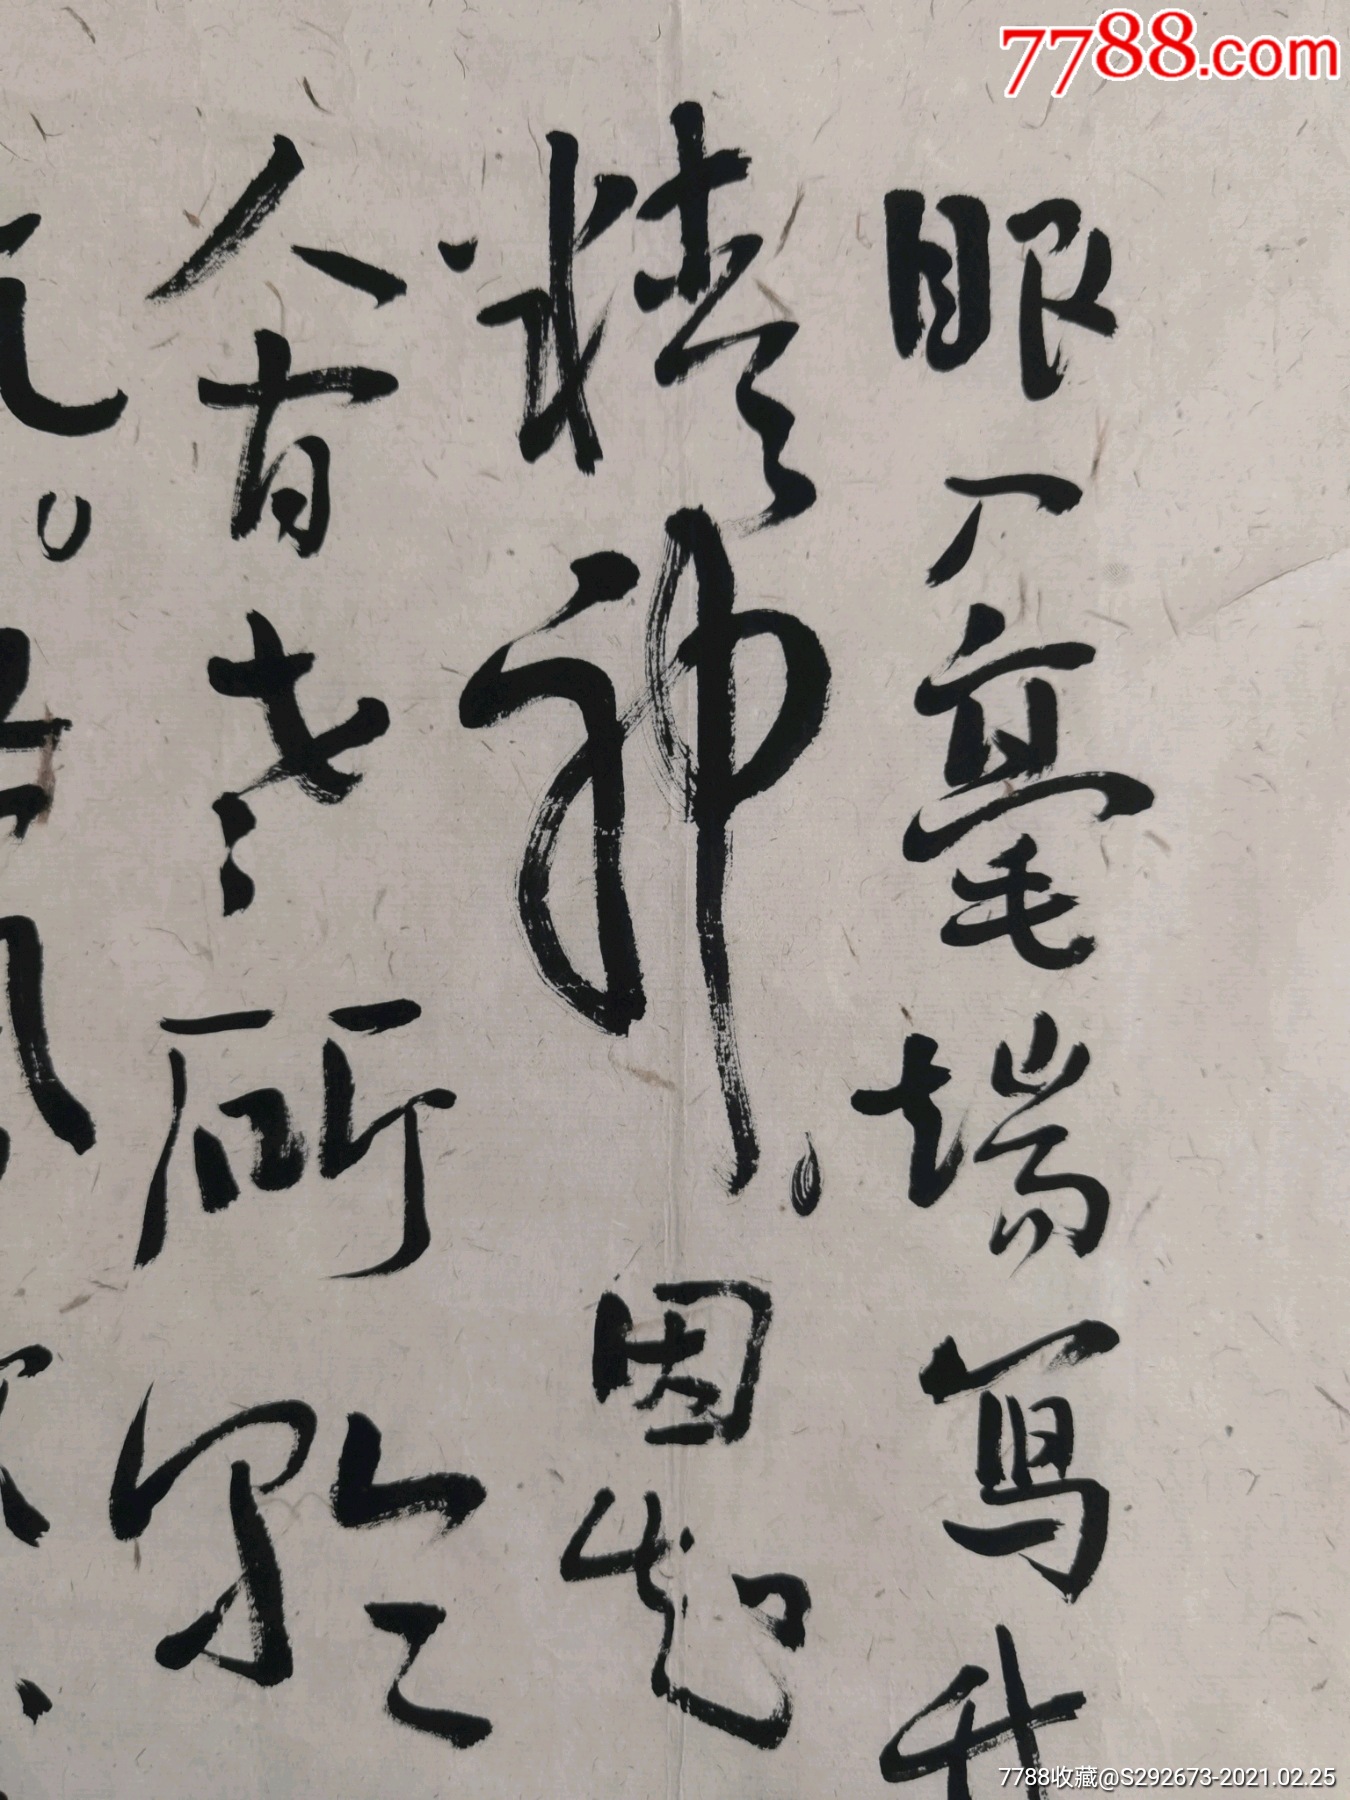 7788.com
眼入毫端寫竹
精神。因知
人间老斫輪
7788收藏@S292673-2021.02.25